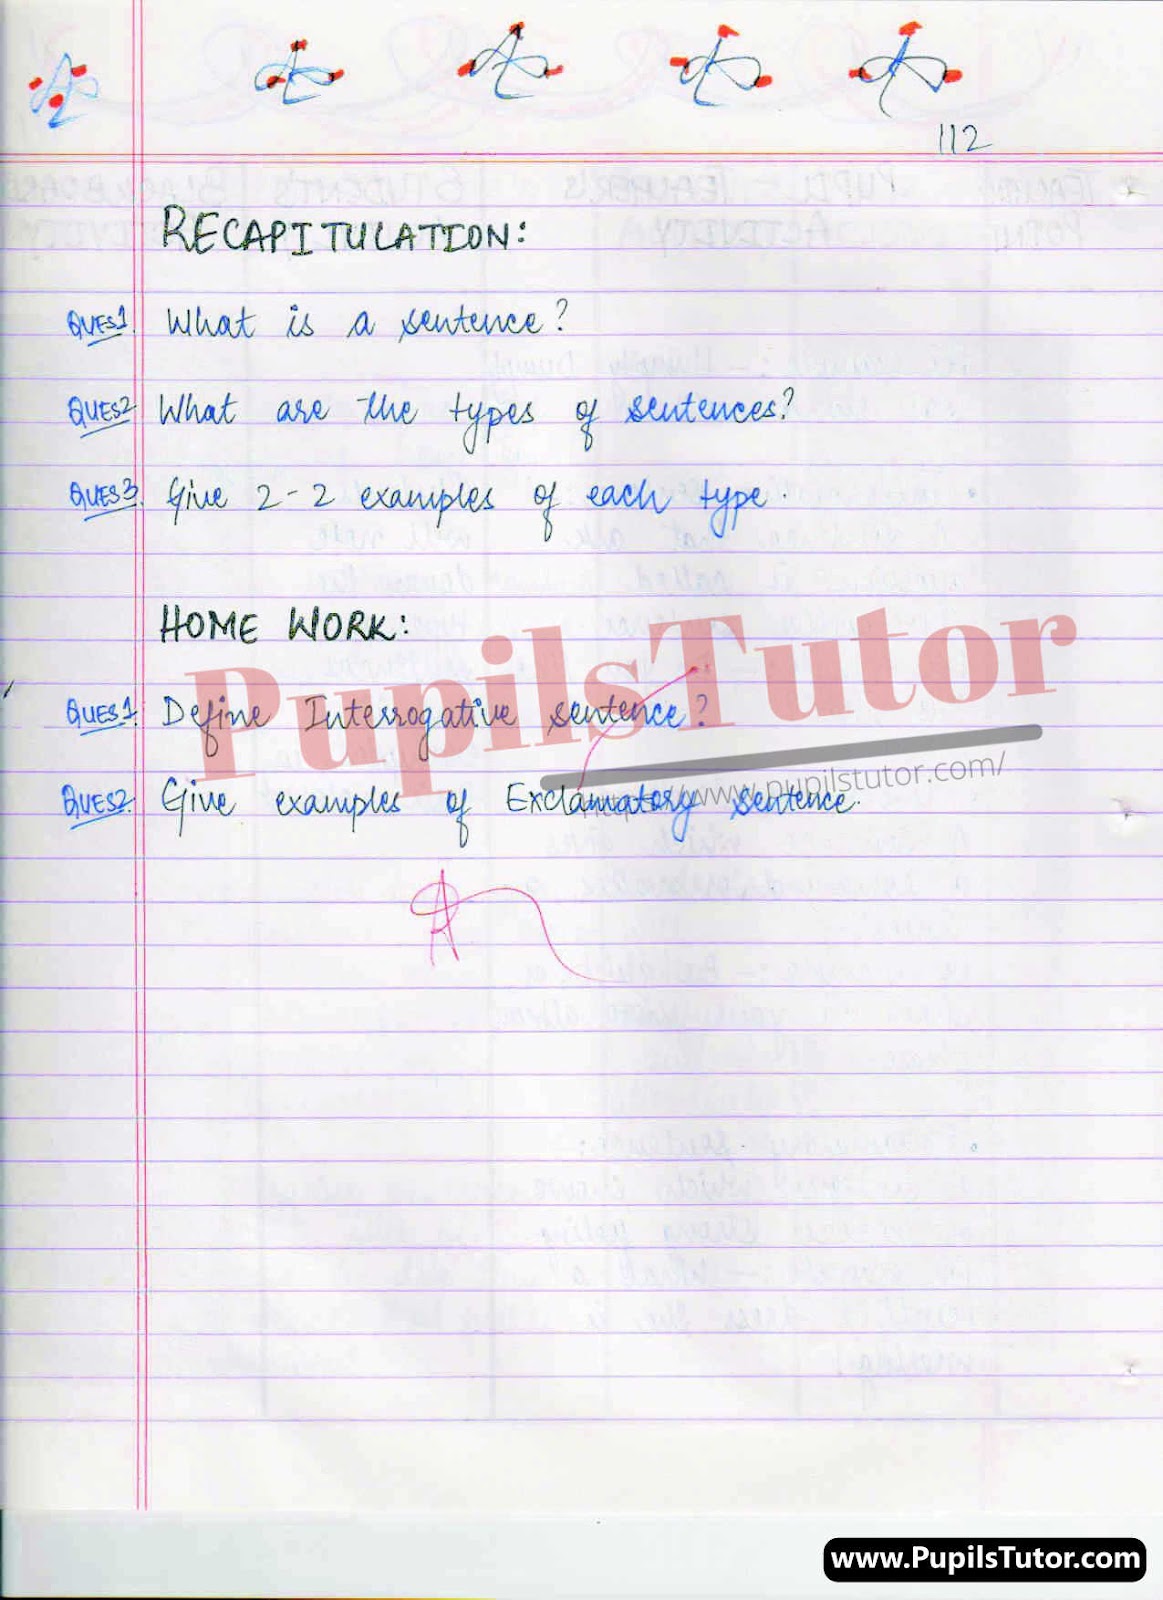 112
RECAPITULATION:
QUES1. What is a sentence?
QUES2. What are the types of sentences?
QUES3. Give 2-2 examples of each type.
HOME WORK:
QUES1. Define Interrogative sentence?
QUES2. Give examples of Exclamatory sentence.
PupilsTutor
https://www.pupilstutor.com/
www.PupilsTutor.com